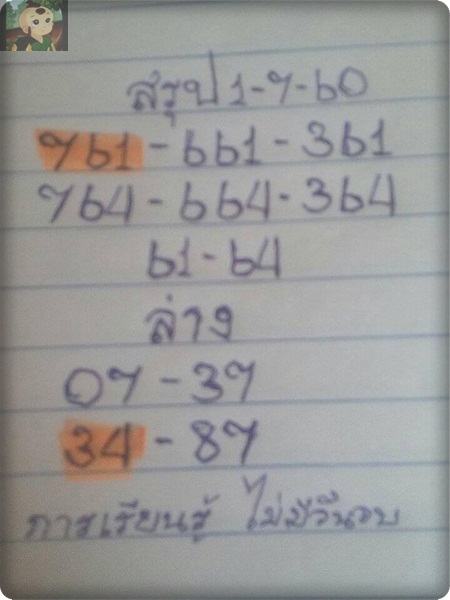 สรุป 1-7-60
761 - 661 - 361
764 - 664 - 364
61 - 64
ล่าง
07 - 37
34 - 87
การเรียนรู้ ไม่มีวันจบ